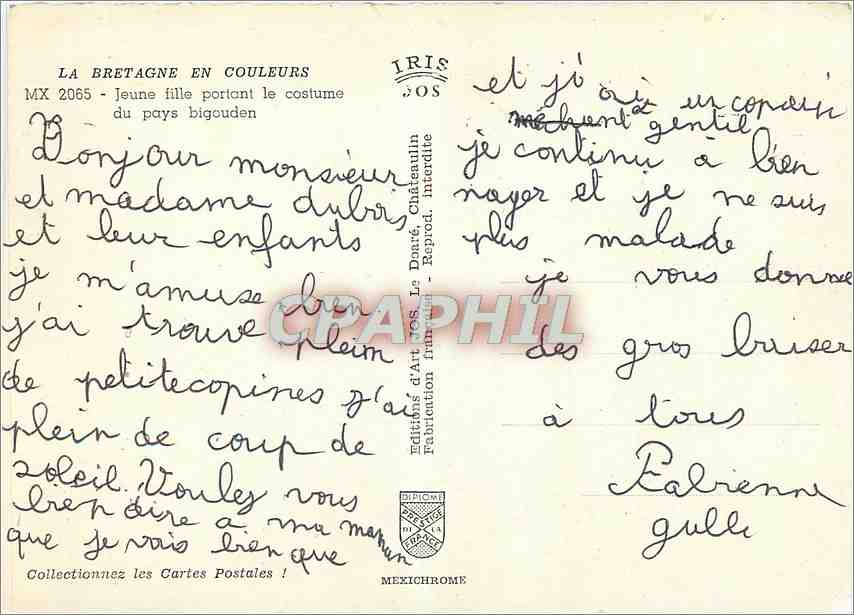 LA BRETAGNE EN COULEURS
MX 2065 - Jeune fille portant le costume
du pays bigouden
Bonjour monsieur
et madame dubois
et leur enfants
je m'amuse bien
j'ai trouve plein
de petitecopines j'ai
plein de coup de
soleil. Voulez vous
bien dire a ma maman
que je vais bien que
Collectionnez les Cartes Postales !
IRIS
JOS
Editions d'Art JOS, Le Doaré, Châteaulin
Fabrication française - Reprod. interdite
DIPLOME
PRESTIGE
DE LA
FRANCE
MEXICHROME
et j'ai un copain
mechant gentil
je continu à bien
nager et je ne suis
plus malade
je vous donne
des gros briser
à tous
Fabienne
CPAPHIL